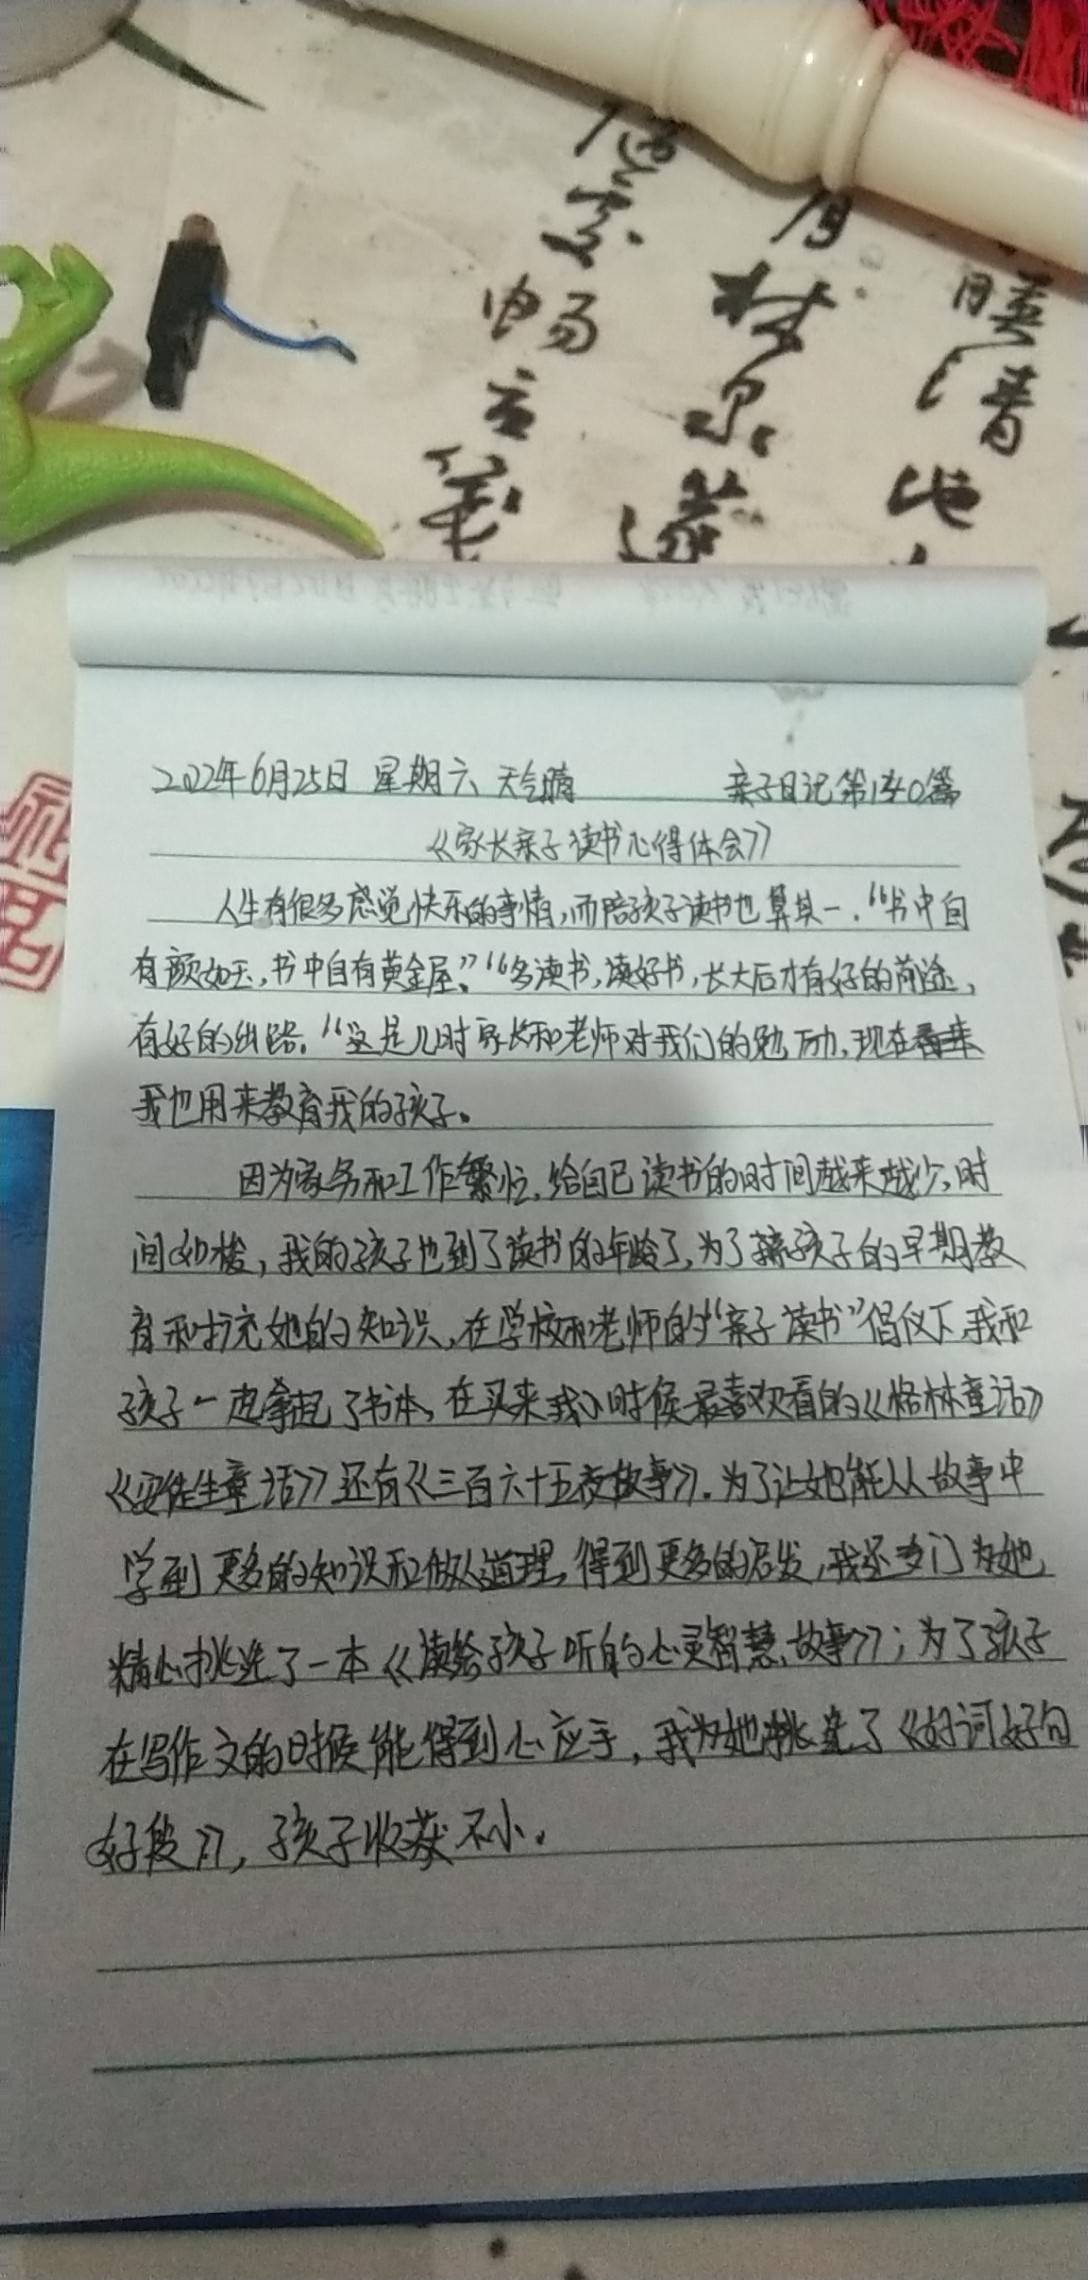 有
梦
泉
蒙
清
地
畅
2022年6月25日 星期六 天气晴 亲子日记第140篇
《家长亲子读书心得体会》
人生有很多感觉快乐的事情,而陪孩子读书也算其一.“书中自
有颜如玉,书中自有黄金屋。”“多读书,读好书,长大后才有好的前途,
有好的出路.“这是儿时家长和老师对我们的勉励,现在看来
我也用来教育我的孩子。
因为家务和工作繁忙,给自己读书的时间越来越少,时
间如梭,我的孩子也到了读书的年龄了,为了孩子的早期教
育和扩充她的知识,在学校和老师的“亲子读书”倡仪下,我和
孩子一起拿起了书本,在买来我小时候最喜欢看的《格林童话》
《安徒生童话》还有《三百六十五夜故事》.为了让她能从故事中
学到更多的知识和做人道理,得到更多的启发,我还专门为她
精心挑选了一本《读给孩子听的心灵智慧故事》;为了孩子
在写作文的时候能得到心应手,我为她挑选了《好词好句
好段》,孩子收获不小.